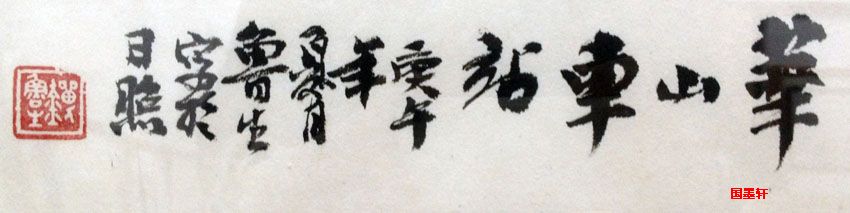 華山車站
庚午
年
夏月
魯生
寫於
日照
国墨轩